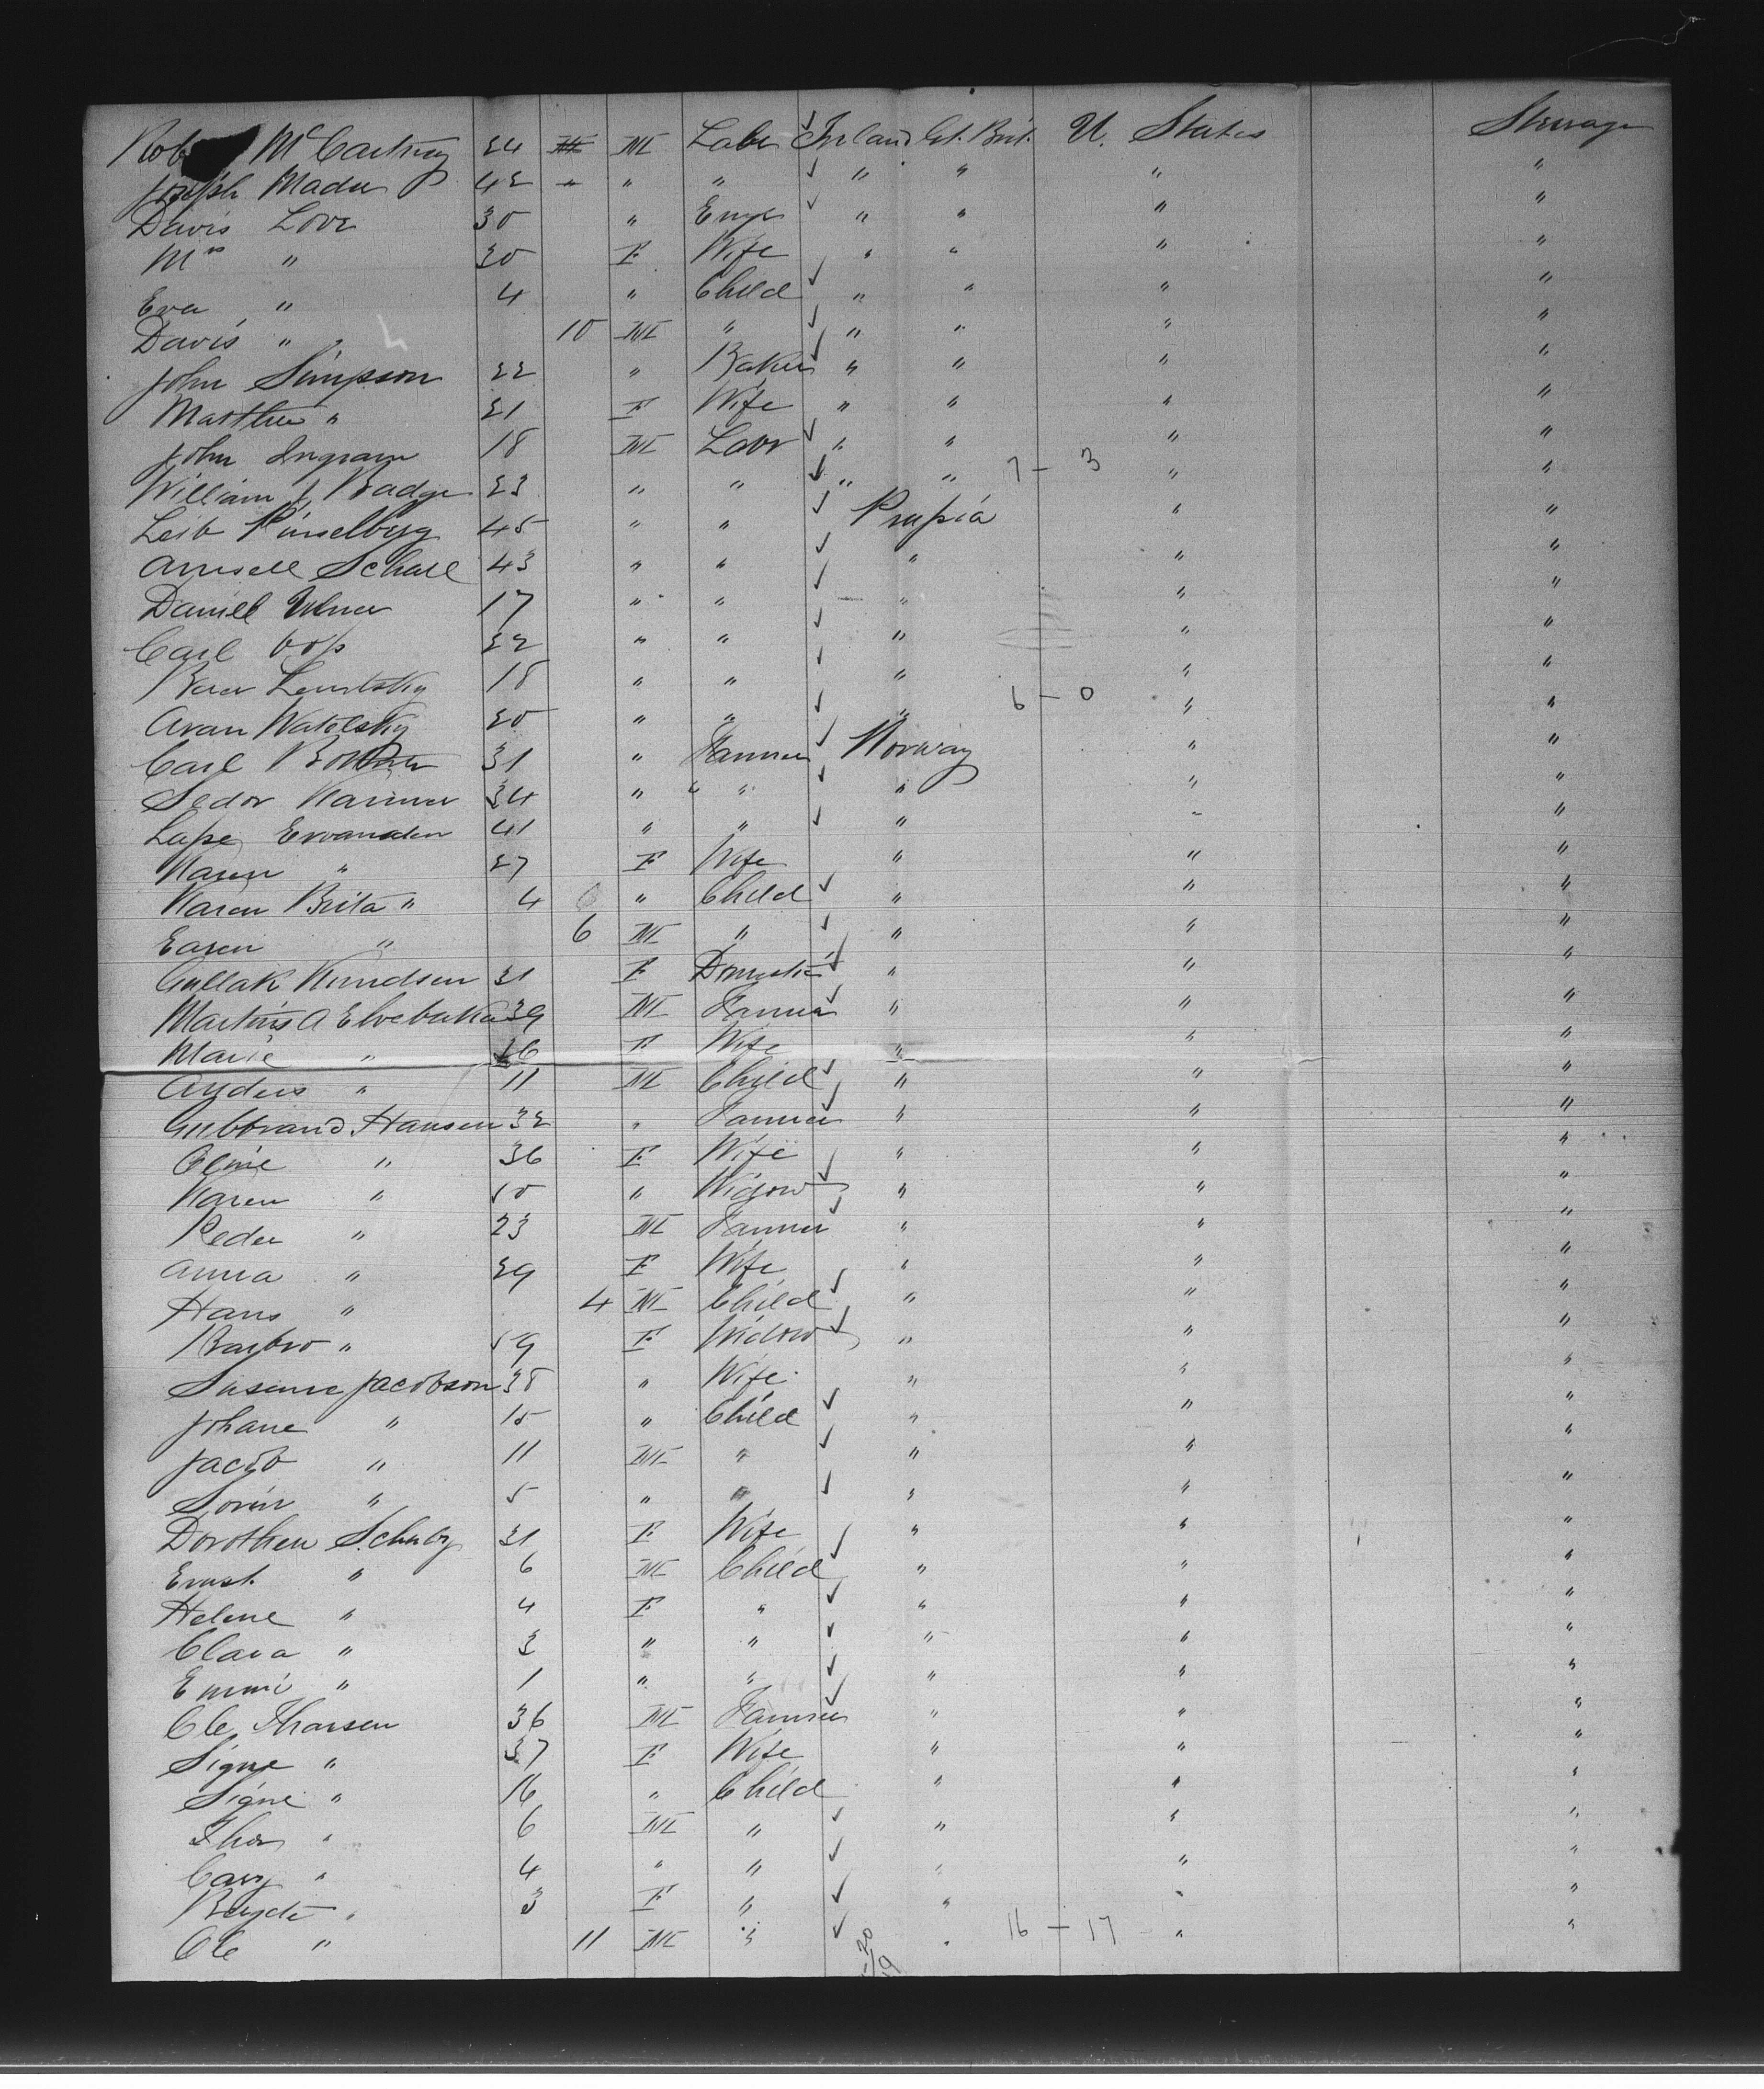 Rob McCartney 24 M Labr Irland Gt. Brit. U. States Steerage
Joseph Mader 42 " " " " " " "
Davis Love 30 " Engr " " " "
Mrs " 30 F Wife " " " "
Eva " 4 " Child " " " "
Davis " 10 M " " " " "
John Simpson 22 " Baker " " " "
Matthew " 21 F Wife " " " "
John Ingram 18 M Labr " " " "
William J Badge 23 " " " " 7 - 3 " "
Leib Pinselberg 45 " " Prussia " "
Amsell Schall 43 " " " " "
Daniel 17 " " " " "
Carl Voss 22 " " " " "
18 " " " " "
Avan Watolsky 20 " " " 6 - 0 " "
Carl 31 " Farmer Norway " "
Sedor 34 " " " " " "
Lasse 41 " " " " "
Karen " 27 F Wife " " "
Karen Brita " 4 " Child " " "
" 6 M " " " "
Gullak Knudsen 21 F Domestic " " "
Martins A Elvebakka 39 M Farmer " " "
Marie " 26 F Wife " " "
Anders " 11 M Child " " "
Gulbrand Hansen 32 " Farmer " " "
Oline " 36 F Wife " " "
Karen " 50 " Widow " " "
Peder " 23 M Farmer " " "
Anna " 29 F Wife " " "
Hans " 4 M Child " " "
Barbro " 59 F Widow " " "
Susanne Jacobson 38 " Wife " " "
Johane " 15 " Child " " "
Jacob " 11 M " " " "
Sorin " 5 " " " " "
Dorothea Schuby 31 F Wife " " "
Ernst " 6 M Child " " "
Helene " 4 F " " " "
Clara " 3 " " " " "
Emmi " 1 " " " " "
Ole Tharsen 36 M Farmer " " "
Signe " 37 F Wife " " "
Signe " 16 " Child " " "
Thor " 6 M " " " "
" 4 " " " " "
" 3 F " " " "
Ole " 11 M " " 16 - 17 " "